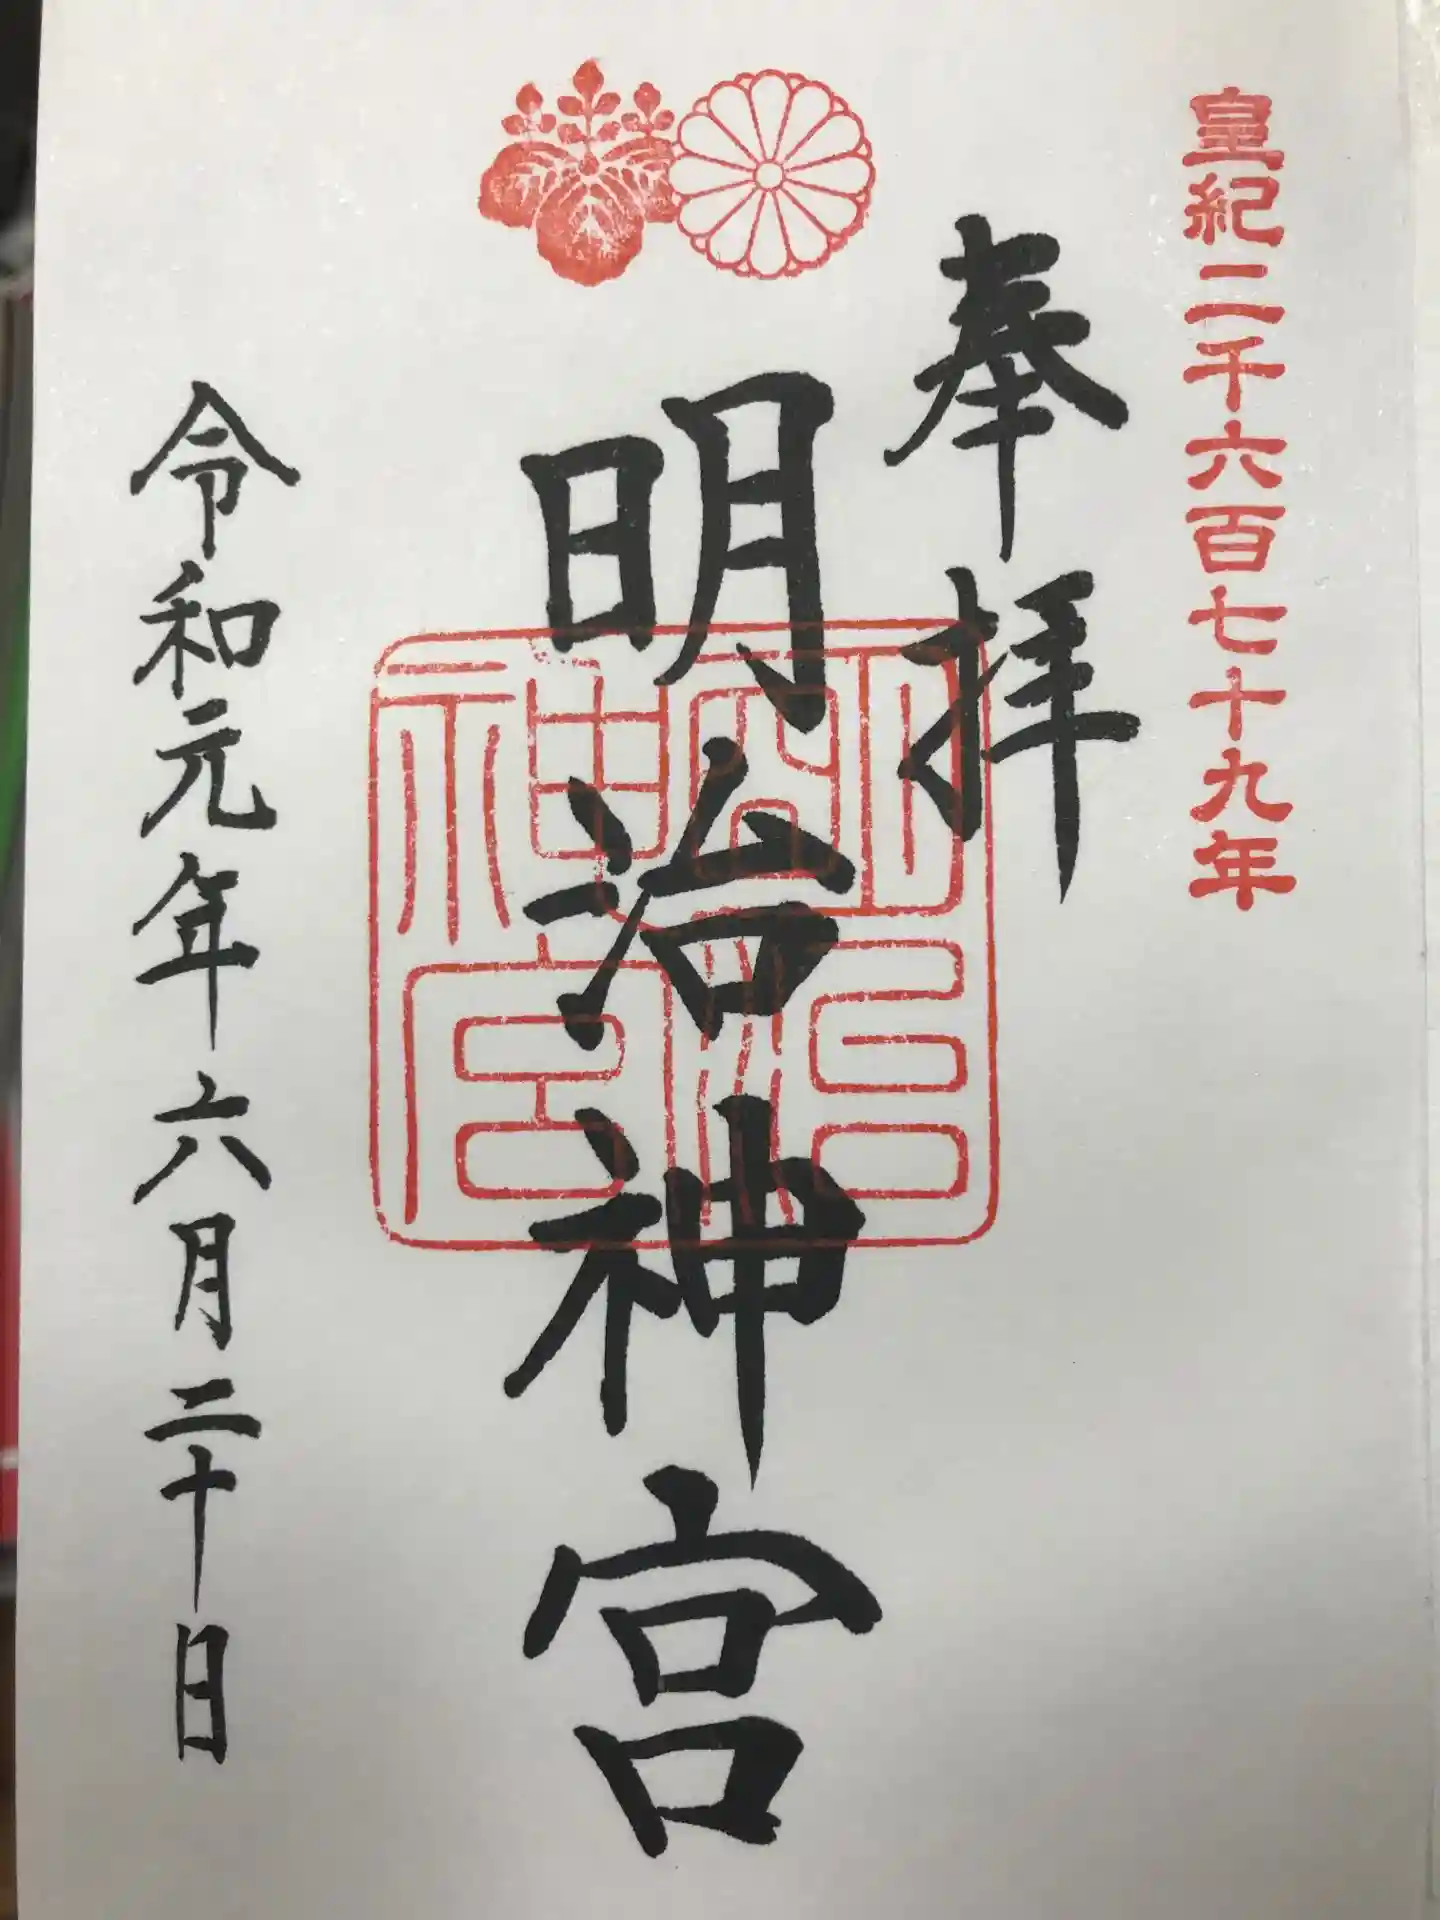 皇紀二千六百七十九年
奉拝
明治神宮
明治神宮
令和元年六月二十日